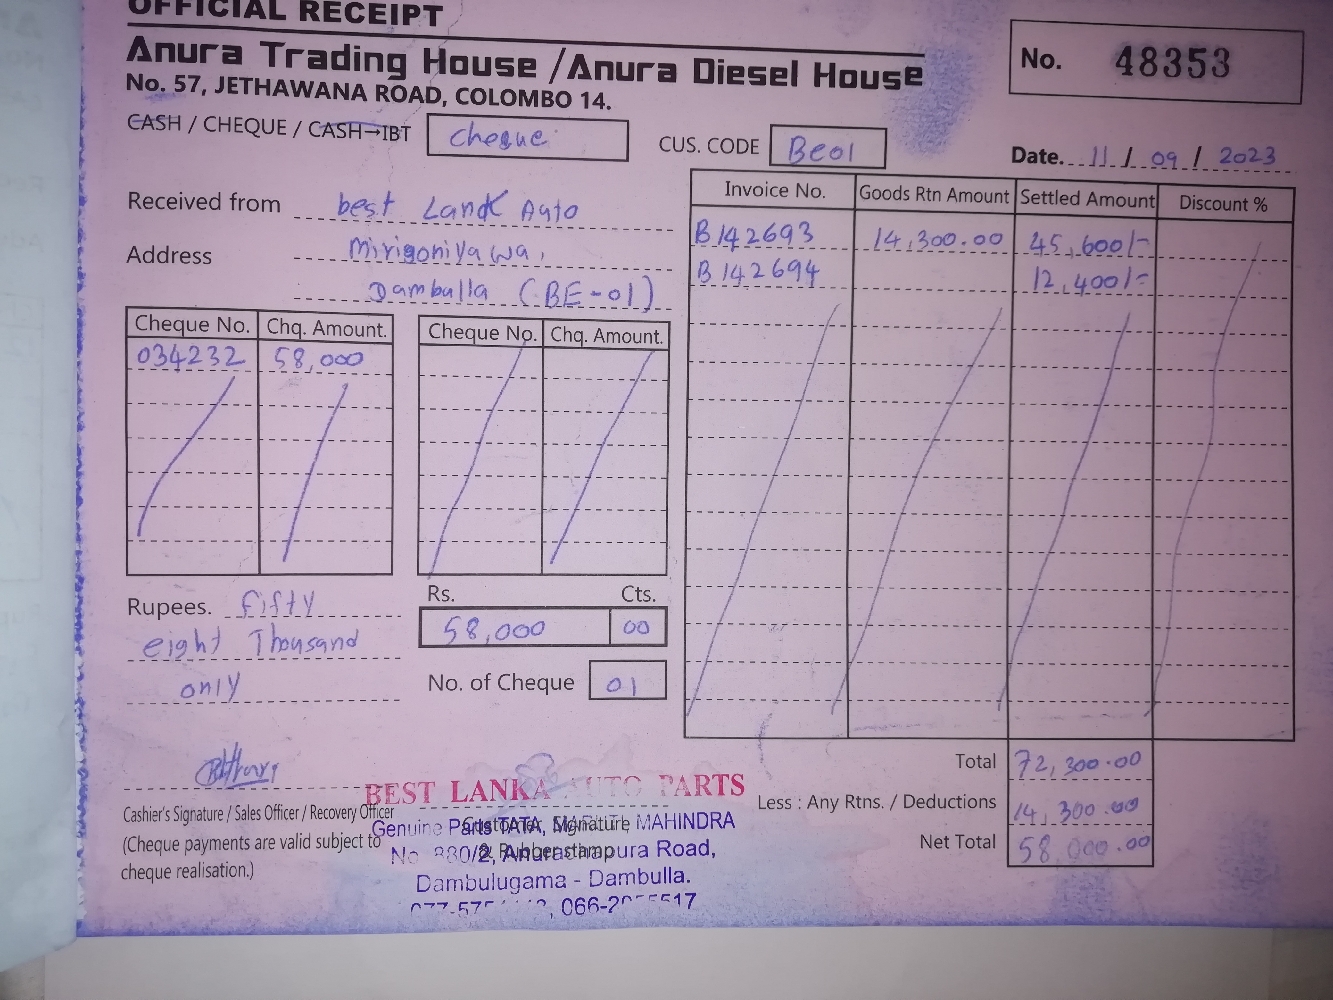 OFFICIAL RECEIPT
Anura Trading House / Anura Diesel House
No. 57, JETHAWANA ROAD, COLOMBO 14.
No. 48353
CASH / CHEQUE / CASH→IBT Cheque
CUS. CODE Be01
Date. 11 / 09 / 2023
Received from best Lank Auto
Address Mirigoniyawa,
Damballa (BE-01)
Cheque No. Chq. Amount.
034232 58,000
Cheque No. Chq. Amount.
Invoice No. Goods Rtn Amount Settled Amount Discount %
B142693 14,300.00 45,600/-
B142694 12,400/-
Rupees. fifty
eight Thousand
only
Rs. Cts.
58,000 00
No. of Cheque 01
Total 72,300.00
Less : Any Rtns. / Deductions 14,300.00
Net Total 58,000.00
Cashier's Signature / Sales Officer / Recovery Officer
(Cheque payments are valid subject to
cheque realisation.)
Customer Signature
& Rubber stamp
BEST LANKA AUTO PARTS
Genuine Parts TATA, MARUTI, MAHINDRA
Anuradhapura Road,
Dambulugama - Dambulla.